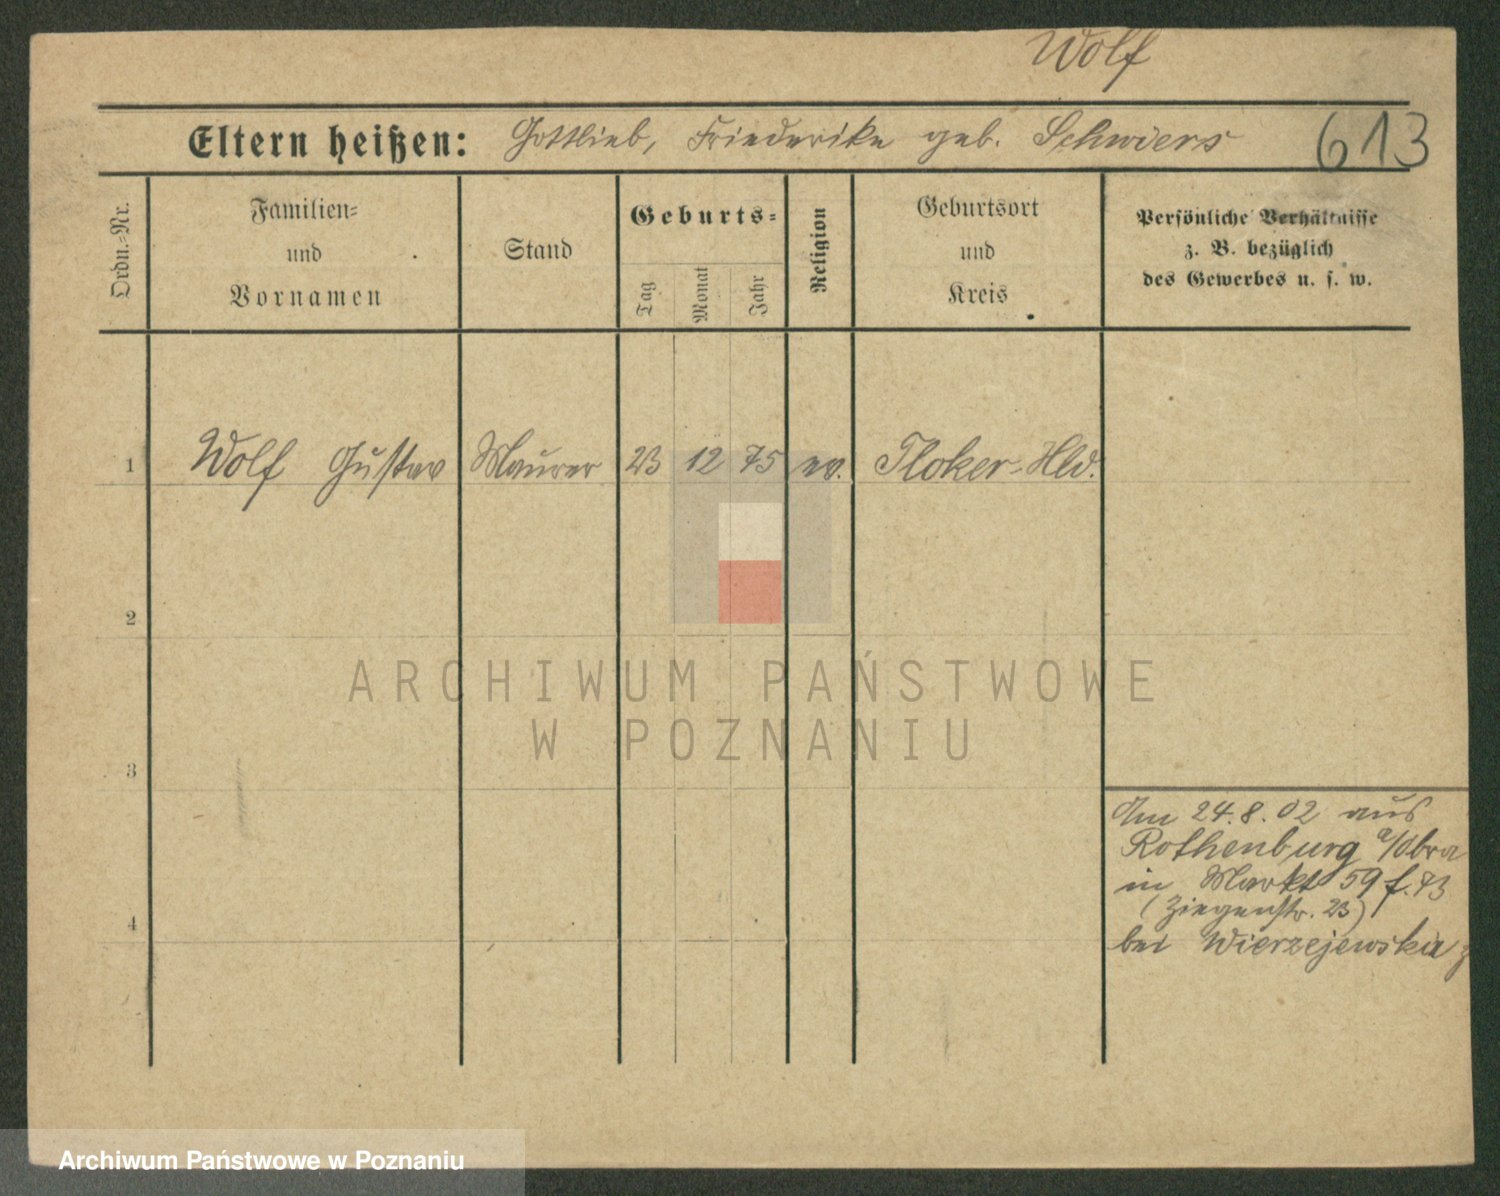 Wolf
Eltern heißen: Gottlieb, Friederike geb. Schwiers 613
Ordn.=Nr.
Familien=
und
Vornamen
Stand
Geburts=
Tag
Monat
Jahr
Religion
Geburtsort
und
Kreis
Persönliche Verhältnisse
z. B. bezüglich
des Gewerbes u. s. w.
1 Wolf Gustav Maurer 23 12 75 ev. Ploker-Hld.
2
3
4
Am 24.8.02 aus
Rothenburg a/Obra
in Markt 59 f. 73
(Ziegenstr. 23)
bei Wierzejewska
ARCHIWUM PAŃSTWOWE
W POZNANIU
Archiwum Państwowe w Poznaniu